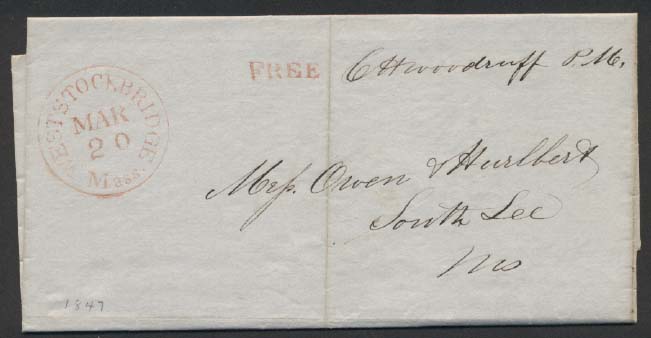 WESTSTOCKBRIDGE
MAR
20
Mass.
FREE
C H Woodruff P.M.
Mess. Owen & Hurlbert
South Lee
Ms
1847